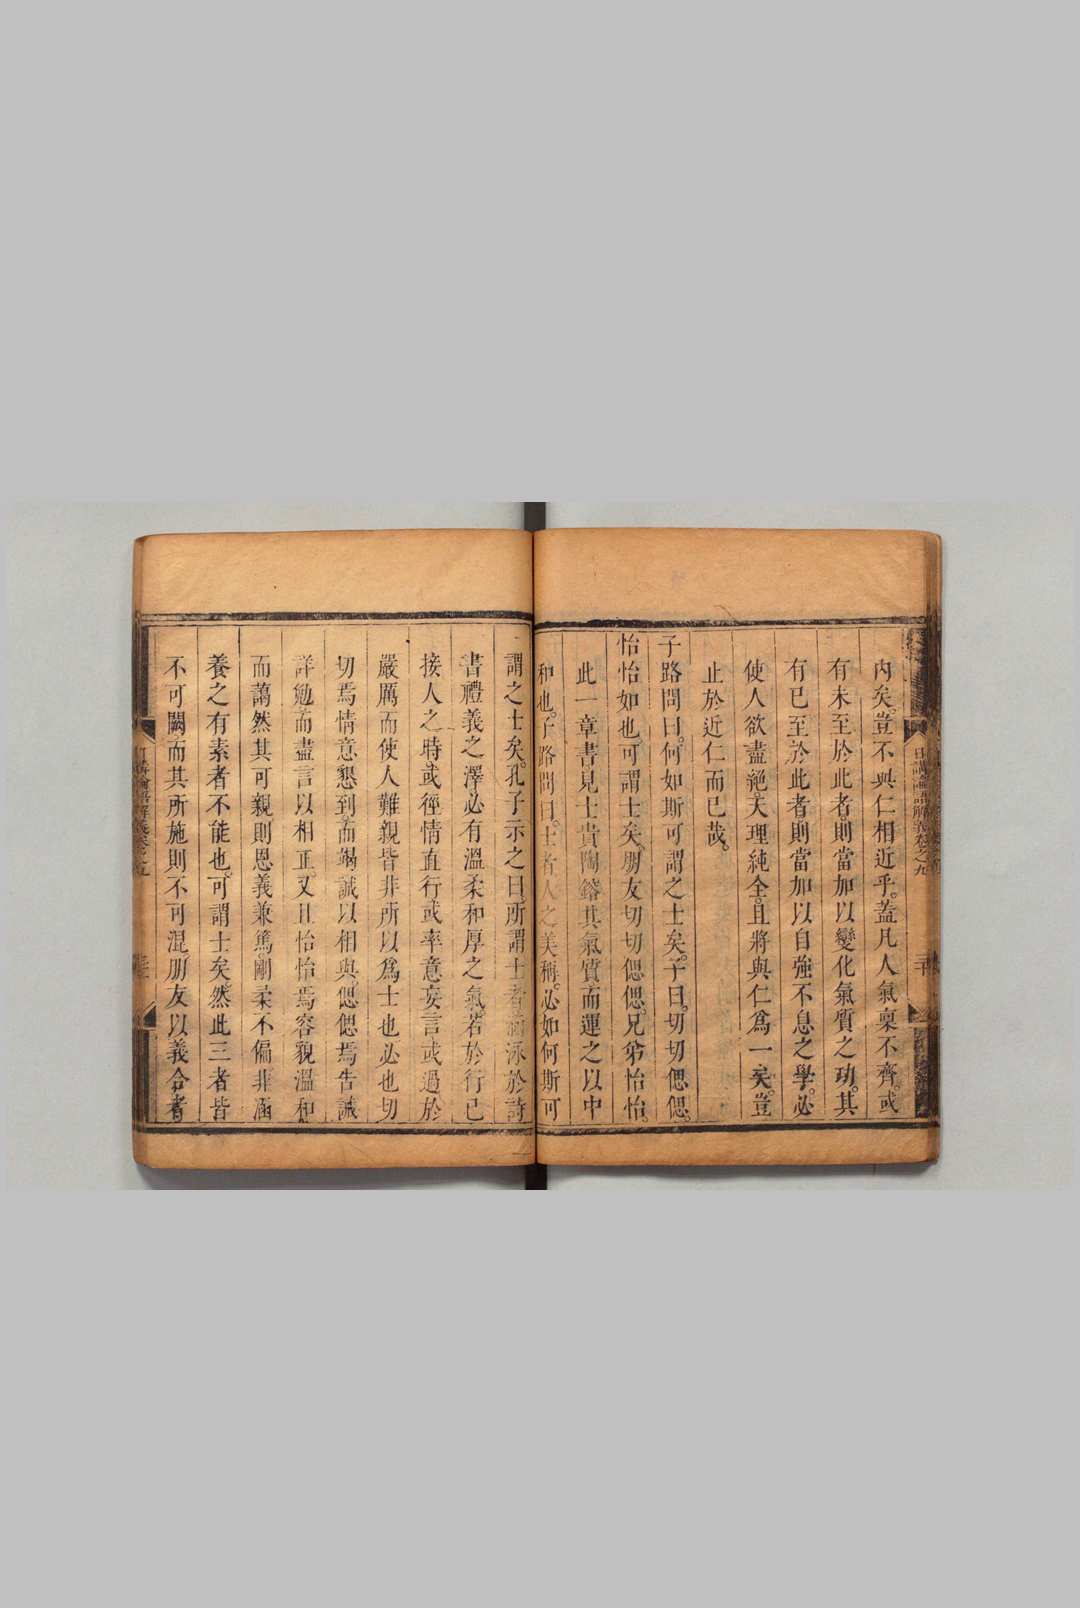 內矣。豈不與仁相近乎。蓋凡人氣稟不齊。或
有未至於此者則當加以變化氣質之功。其
有已至於此者則當加以自強不息之學。必
使人欲盡絕。天理純全。且將與仁爲一矣。豈
止於近仁而已哉。
子路問曰。何如斯可謂之士矣。子曰。切切偲偲。
怡怡如也。可謂士矣。朋友切切偲偲。兄弟怡怡
此一章書見士貴陶鎔其氣質而運之以中
和也。子路問曰。士者人之美稱。必如何斯可
謂之士矣。孔子示之曰。所謂士者涵泳於詩
書禮義之澤必有溫柔和厚之氣若於行已
接人之時或徑情直行或率意妄言或過於
嚴厲而使人難親皆非所以爲士也必也切
切焉情意懇到。而竭誠以相與。偲偲焉告誡
詳勉而盡言以相正。又且怡怡焉容貌溫和
而藹然其可親則恩義兼篤。剛柔不偏非涵
養之有素者不能也。可謂士矣。然此三者皆
不可闕而其所施則不可混朋友以義合者